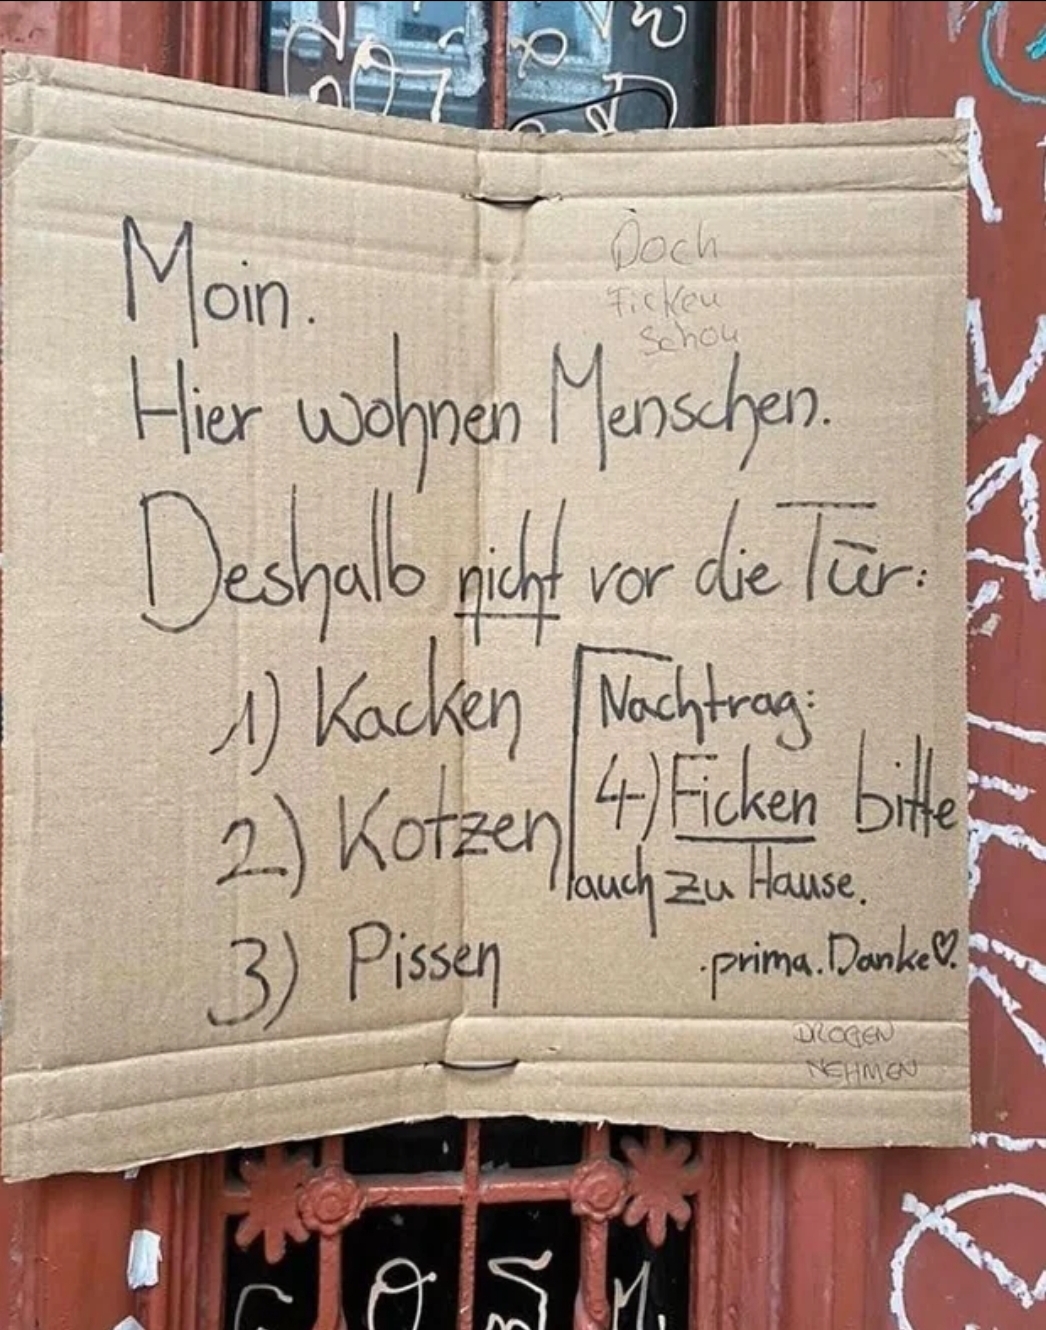 Moin.
Doch
Ficken
schon
Hier wohnen Menschen.
Deshalb nicht vor die Tür:
1) Kacken
2) Kotzen
3) Pissen
Nachtrag:
4) Ficken bitte
auch zu Hause.
prima. Danke♡.
DROGEN
NEHMEN